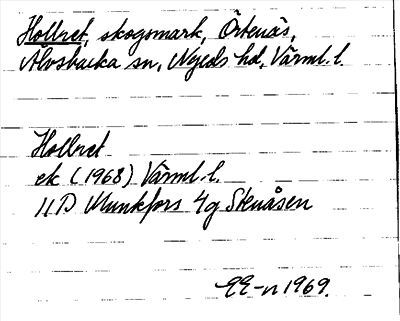 Hollret, skogsmark, Örtenäs,
Älvsbacka sn, Nyeds hd, Värml. l.
Hollret
ek (1968) Värml. l.
11 D Munkfors 4g Stenåsen
1969.